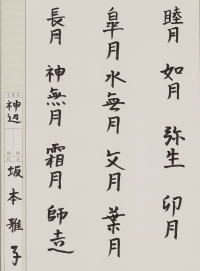 睦月 如月 弥生 卯月
皐月 水無月 文月 葉月
長月 神無月 霜月 師走
神辺
坂本雅子